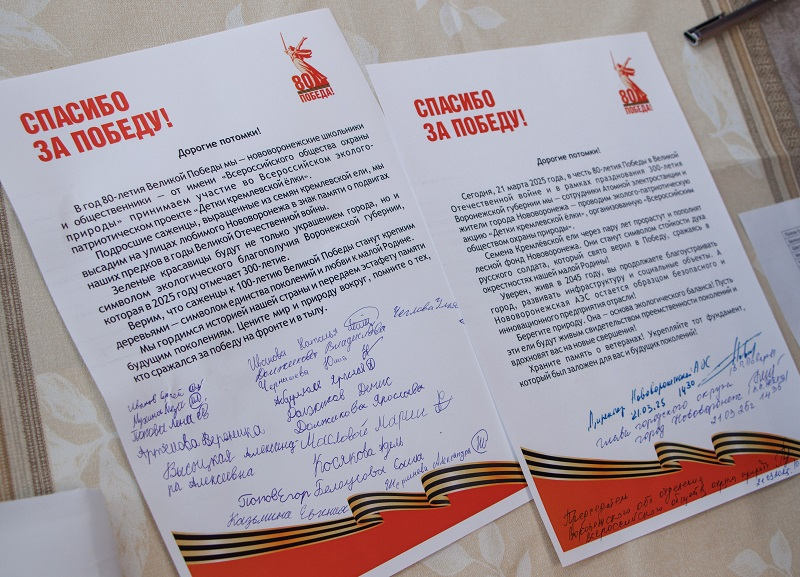 СПАСИБО
ЗА ПОБЕДУ!
80
ПОБЕДА!
Дорогие потомки!
В год 80-летия Великой Победы мы – нововоронежские школьники
и общественники – от имени «Всероссийского общества охраны
природы» принимаем участие во Всероссийском эколого-
патриотическом проекте «Детки кремлевской ёлки».
Подросшие саженцы, выращенные из семян кремлевской ели, мы
высадим на улицах любимого Нововоронежа в знак памяти о подвигах
наших предков в годы Великой Отечественной войны.
Зеленые красавицы будут не только украшением города, но и
символом экологического благополучия Воронежской губернии,
которая в 2025 году отмечает 300-летие.
Верим, что саженцы к 100-летию Великой Победы станут крепким
деревьями – символом единства поколений и любви к малой Родине.
Мы гордимся историей нашей страны и передаем эстафету памяти
будущим поколениям. Цените мир и природу вокруг, помните о тех,
кто сражался за победу на фронте и в тылу.
Артёнова Вероника
Высоцкая Александ-
ра Алексеевна
Должиков Денис
Должикова Ярослава
Масловой Марии
Косякова
Попов Егор Белоусова Софья
Казьмина Евгения
СПАСИБО
ЗА ПОБЕДУ!
80
ПОБЕДА!
Дорогие потомки!
Сегодня, 21 марта 2025 года, в честь 80-летия Победы в Великой
Отечественной войне и в рамках празднования 300-летия
Воронежской губернии мы – сотрудники Атомной электростанции и
жители города Нововоронежа – проводим эколого-патриотическую
акцию «Детки кремлевской ёлки», организованную «Всероссийским
обществом охраны природы».
Семена Кремлёвской ели через пару лет прорастут и пополнят
лесной фонд Нововоронежа. Они станут символом стойкости духа
русского солдата, который свято верил в Победу, сражаясь в
окрестностях нашей малой Родины!
Уверен, живя в 2045 году, вы продолжаете благоустраивать
город, развивать инфраструктуру и социальные объекты. А
Нововоронежская АЭС остается образцом безопасного и
инновационного предприятия отрасли!
Берегите природу. Она – основа экологического баланса! Пусть
эти ели будут живым свидетельством преемственности поколений и
вдохновят вас на новые свершения!
Храните память о ветеранах! Укрепляйте тот фундамент,
который был заложен для вас и будущих поколений!
Директор Нововоронежской АЭС
21.03.25 14:30
Глава городского округа
город Нововоронеж
21.03.25г 14:35
Председатель
Воронежского обл. отделения
Всероссийского общества охраны природы